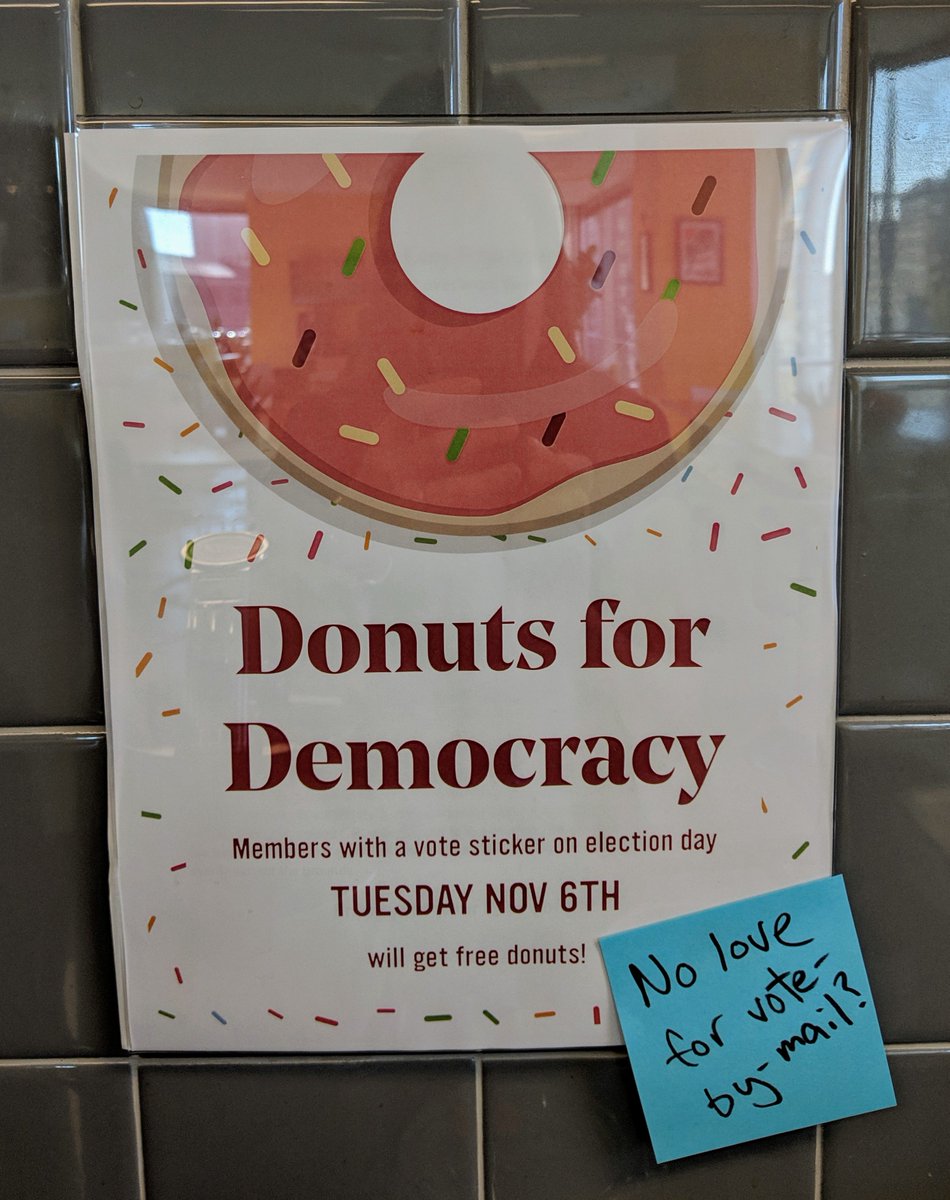 Donuts for
Democracy
Members with a vote sticker on election day
TUESDAY NOV 6TH
will get free donuts!
No love
for vote-
by-mail?